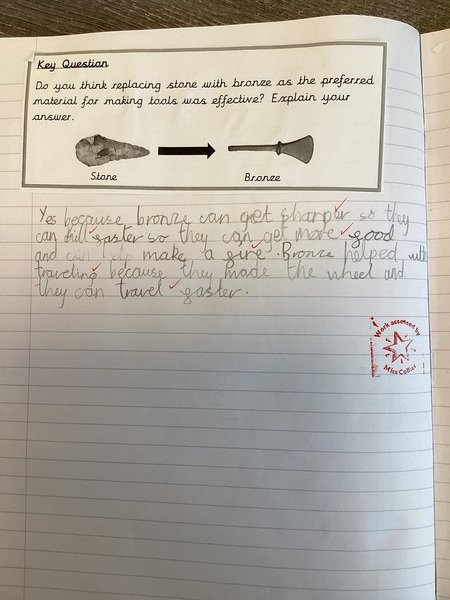 Key Question
Do you think replacing stone with bronze as the preferred
material for making tools was effective? Explain your
answer.
Stone
Bronze
Yes because bronze can get sharper so they
can kill faster so they can get more good
and can help make a fire. Bronze helped with
traveling because they made the wheel and
they can travel faster.
Work assessed by
Miss Collier